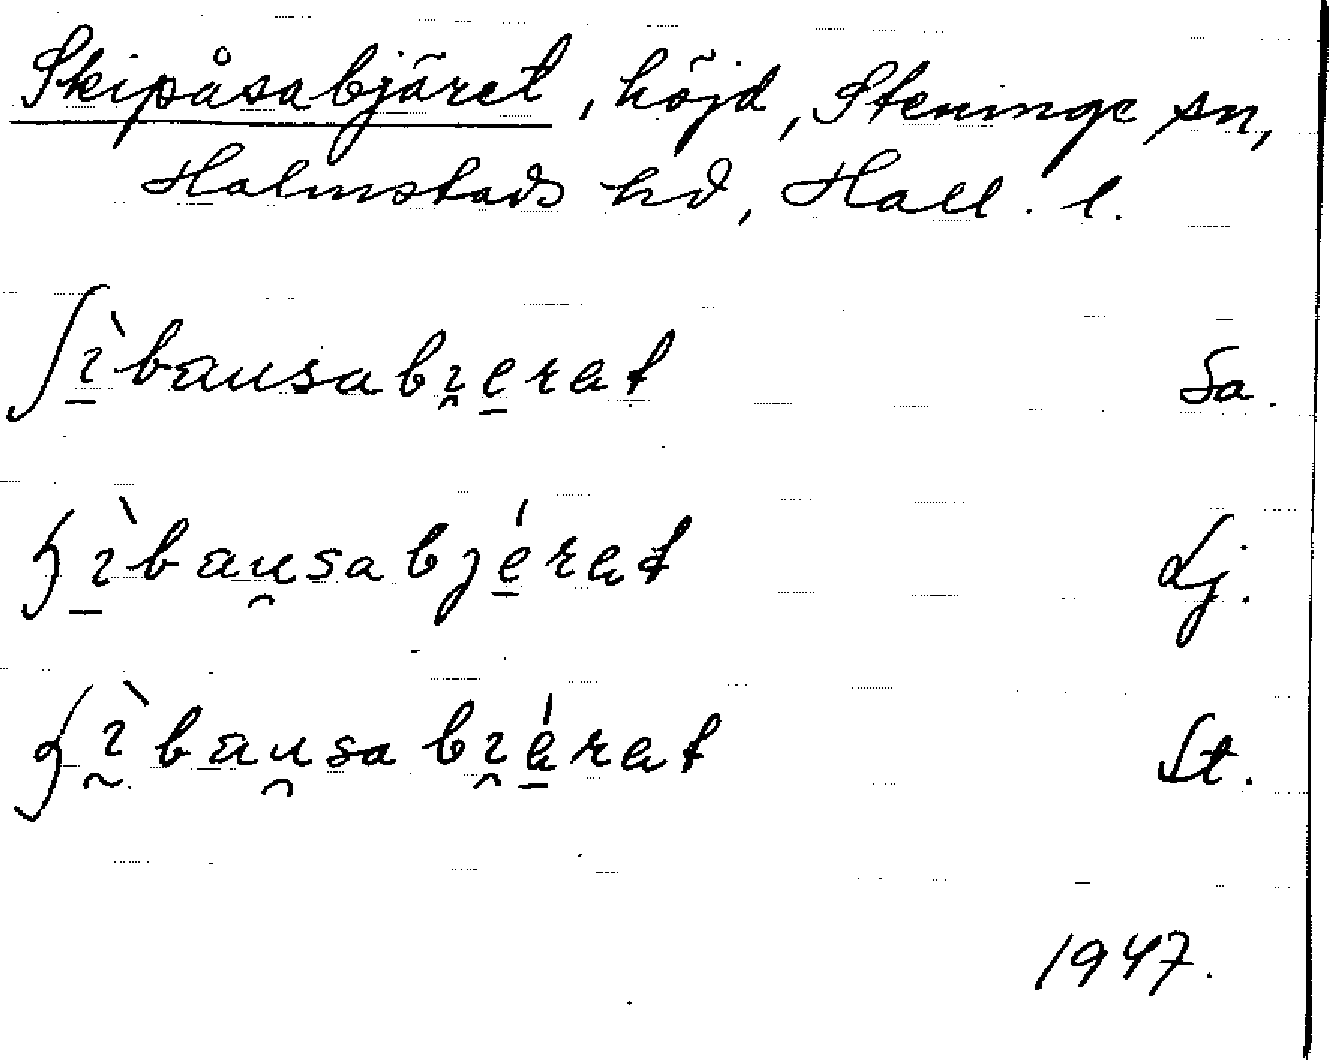 Skipåsabjäret, höjd, Steninge sn,
Halmstads hd, Hall. l.
ʃɪ̠̀bausabɪ̯e̠rat Sa.
ɧɪ̠̀bau̯sabȷé̠rat Lj.
ɧɪ̰̀bau̯sabɪ̯é̠rat St.
1947.